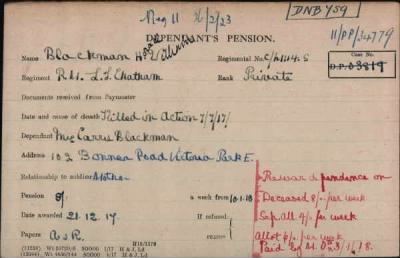 Reg 11 2/2/23
DNB 759
DEPENDANT'S PENSION.
11/DP/34779
Name Blackman H. Regimental No. C/
Case No.
D.P. 03819
Regiment R.M. L.I. Chatham Rank Private
Documents received from Paymaster
Date and cause of death Killed in Action 7/7/17
Dependant Mrs Carrie Blackman
Address 102 Bonner Road Victoria Park E.
Relationship to soldier Mother
Pension 8/- a week from 10.1.18
Date awarded 21.12.17. If refused:
Papers A & R. reason
Re war dependence on
Deceased 8/- per week
Sep. All 4/- per week
Allot 6/- per week
Paid by M. O. 3/1/18.
H16/1179